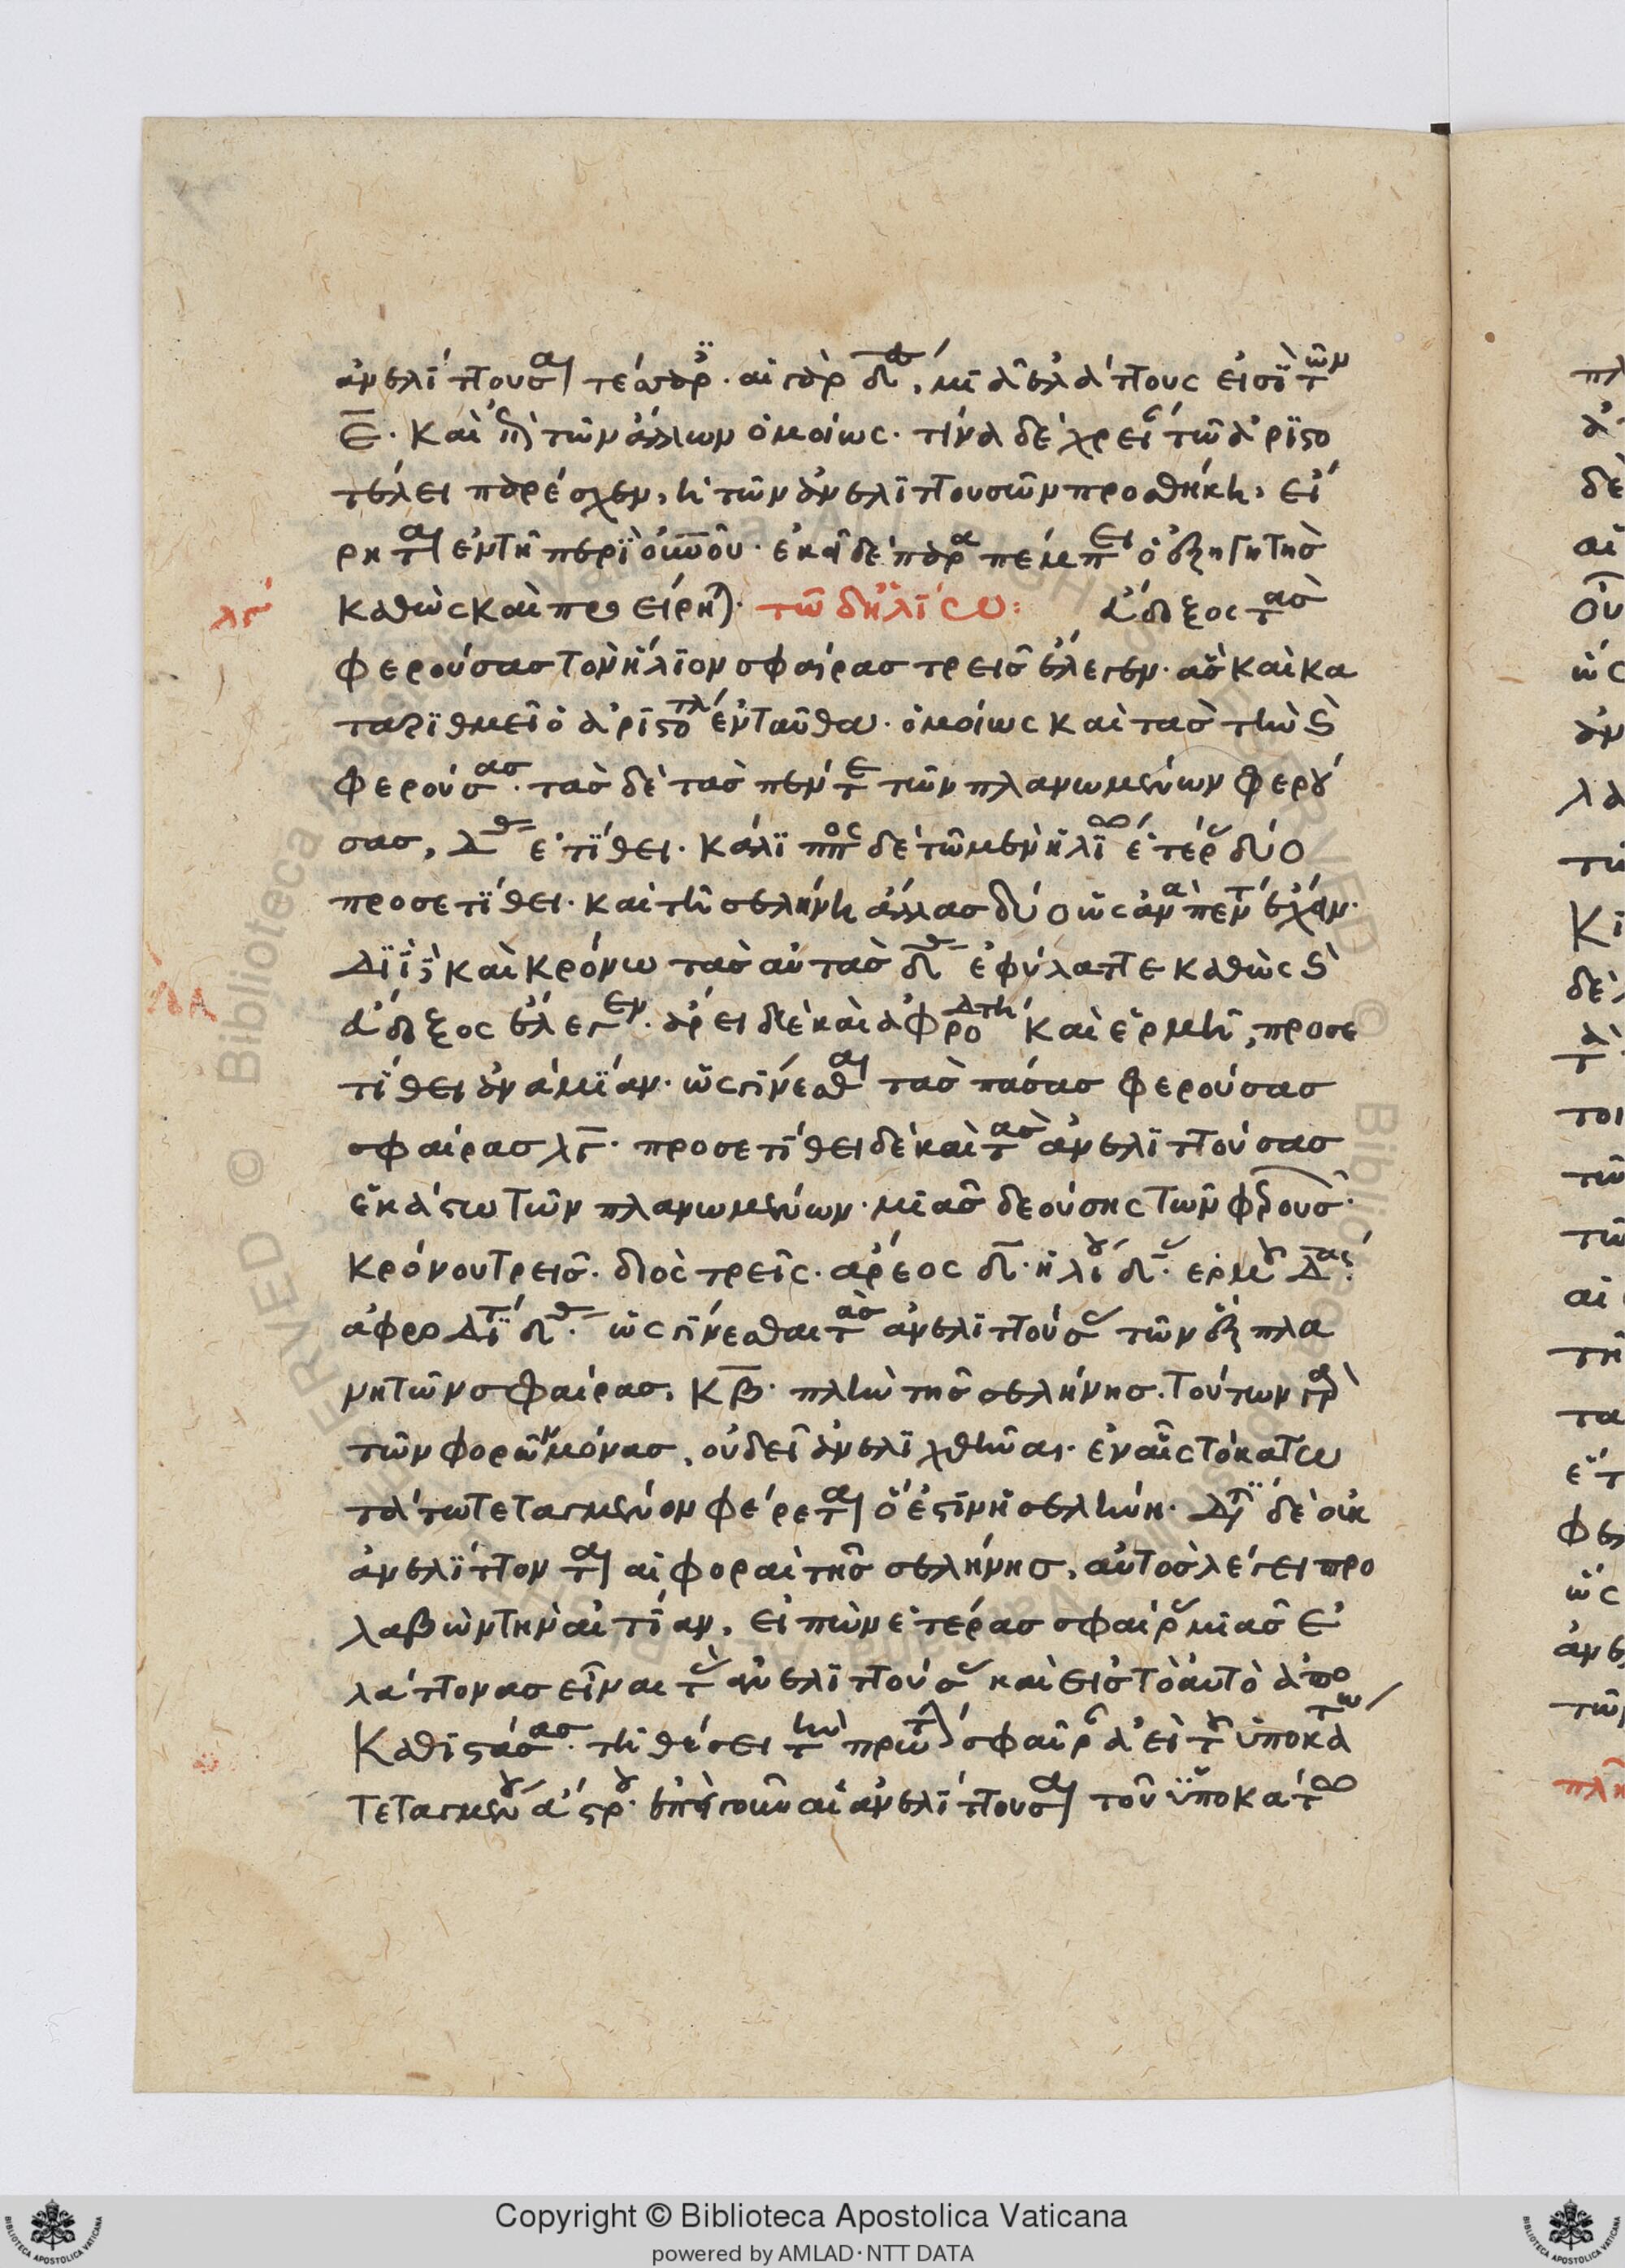 ἀνελίττουσαι τέσσαρες. αἱ γὰρ δ, μιᾶ ἐλάττους εἰσὶ τῶν
ε. καὶ ἐπὶ τῶν ἄλλων ὁμοίως. τίνα δὲ χρείαν τῶ ἀριστο
τέλει παρέσχεν, ἡ τῶν ἀνελιττουσῶν προσθήκη, εἴ
ρηται ἐν τῆ περὶ οὐρανοῦ. ἐκεῖ δὲ παραπέμπει ὁ ἐξηγητὴς
λγ
καθὼς καὶ προείρηται. τῶ δ' ἡλίω: Εὔδοξος τὰς
φερούσας τὸν ἥλιον σφαίρας τρεῖς ἔλεγεν. ἃς καὶ κα
ταριθμεῖ ὁ ἀριστοτέλης ἐνταῦθα. ὁμοίως καὶ τὰς τὴν
φερούσας. τὰς δὲ τὰς πέντε τῶν πλανωμένων φερού
σας, ἐτίθει. κάλιππος δὲ τῶ μὲν ἡλίω ἑτέρας δύο
προσετίθει. καὶ τῆ σελήνη ἄλλας δύο ὡς ἀνὰ πέντε ἔχειν.
Διὶ καὶ κρόνω τὰς αὐτὰς δ ἐφύλαττε καθὼς
εὔδοξος ἔλεγεν. ἄρει δὲ καὶ ἀφροδίτη καὶ ἑρμῆ, προσε
τίθει ἀνὰ μίαν. ὡς γίνεσθαι τὰς πάσας φερούσας
σφαίρας λγ. προσετίθει δὲ καὶ τὰς ἀνελιττούσας
ἑκάστω τῶν πλανωμένων. μιᾶς δεούσης τῶν φερουσῶν.
κρόνου τρεῖς. διὸς τρεῖς. ἄρεος δ. ἡλίου δ. ἑρμοῦ
ἀφροδίτης δ. ὡς γίνεσθαι τὰς ἀνελιττούσας τῶν ἓξ πλα
νητῶν σφαίρας, κβ. πλὴν τῆς σελήνης. τούτων γὰρ
τῶν φορῶν μόνας, οὐ δεῖ ἀνελιχθῆναι. ἐν αἷς τὸ κάτω
τάτω τεταγμένον φέρεται ὅ ἐστιν ἡ σελήνη. διατί δὲ οὐκ
ἀνελίττονται αἱ φοραὶ τῆς σελήνης, αὐτὸς λέγει προ
λαβὼν τὴν αἰτίαν, εἰπὼν ἑτέρας σφαίρας μιᾶς ἐ
λάττονας εἶναι τὰς ἀνελιττούσας καὶ εἰς τὸ αὐτὸ ἀπο
καθιστάσας. τῆ θέσει τὴν πρώτην σφαῖραν ἀεὶ τοῦ ὑποκάτω
τεταγμένου ἄστρου. ἐπεὶ γοῦν αἱ ἀνελίττουσαι τοῦ ὑποκάτω